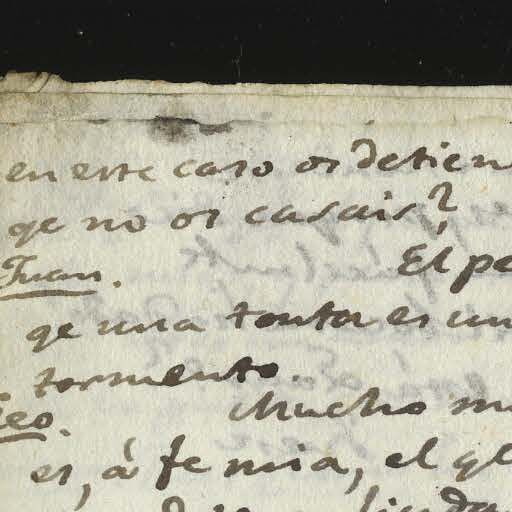 en este caso os detien
qe no os casais?
Juan. El pe
qe una tonta es un
tormento.
eo. Mucho m
es, á fe mia, el q